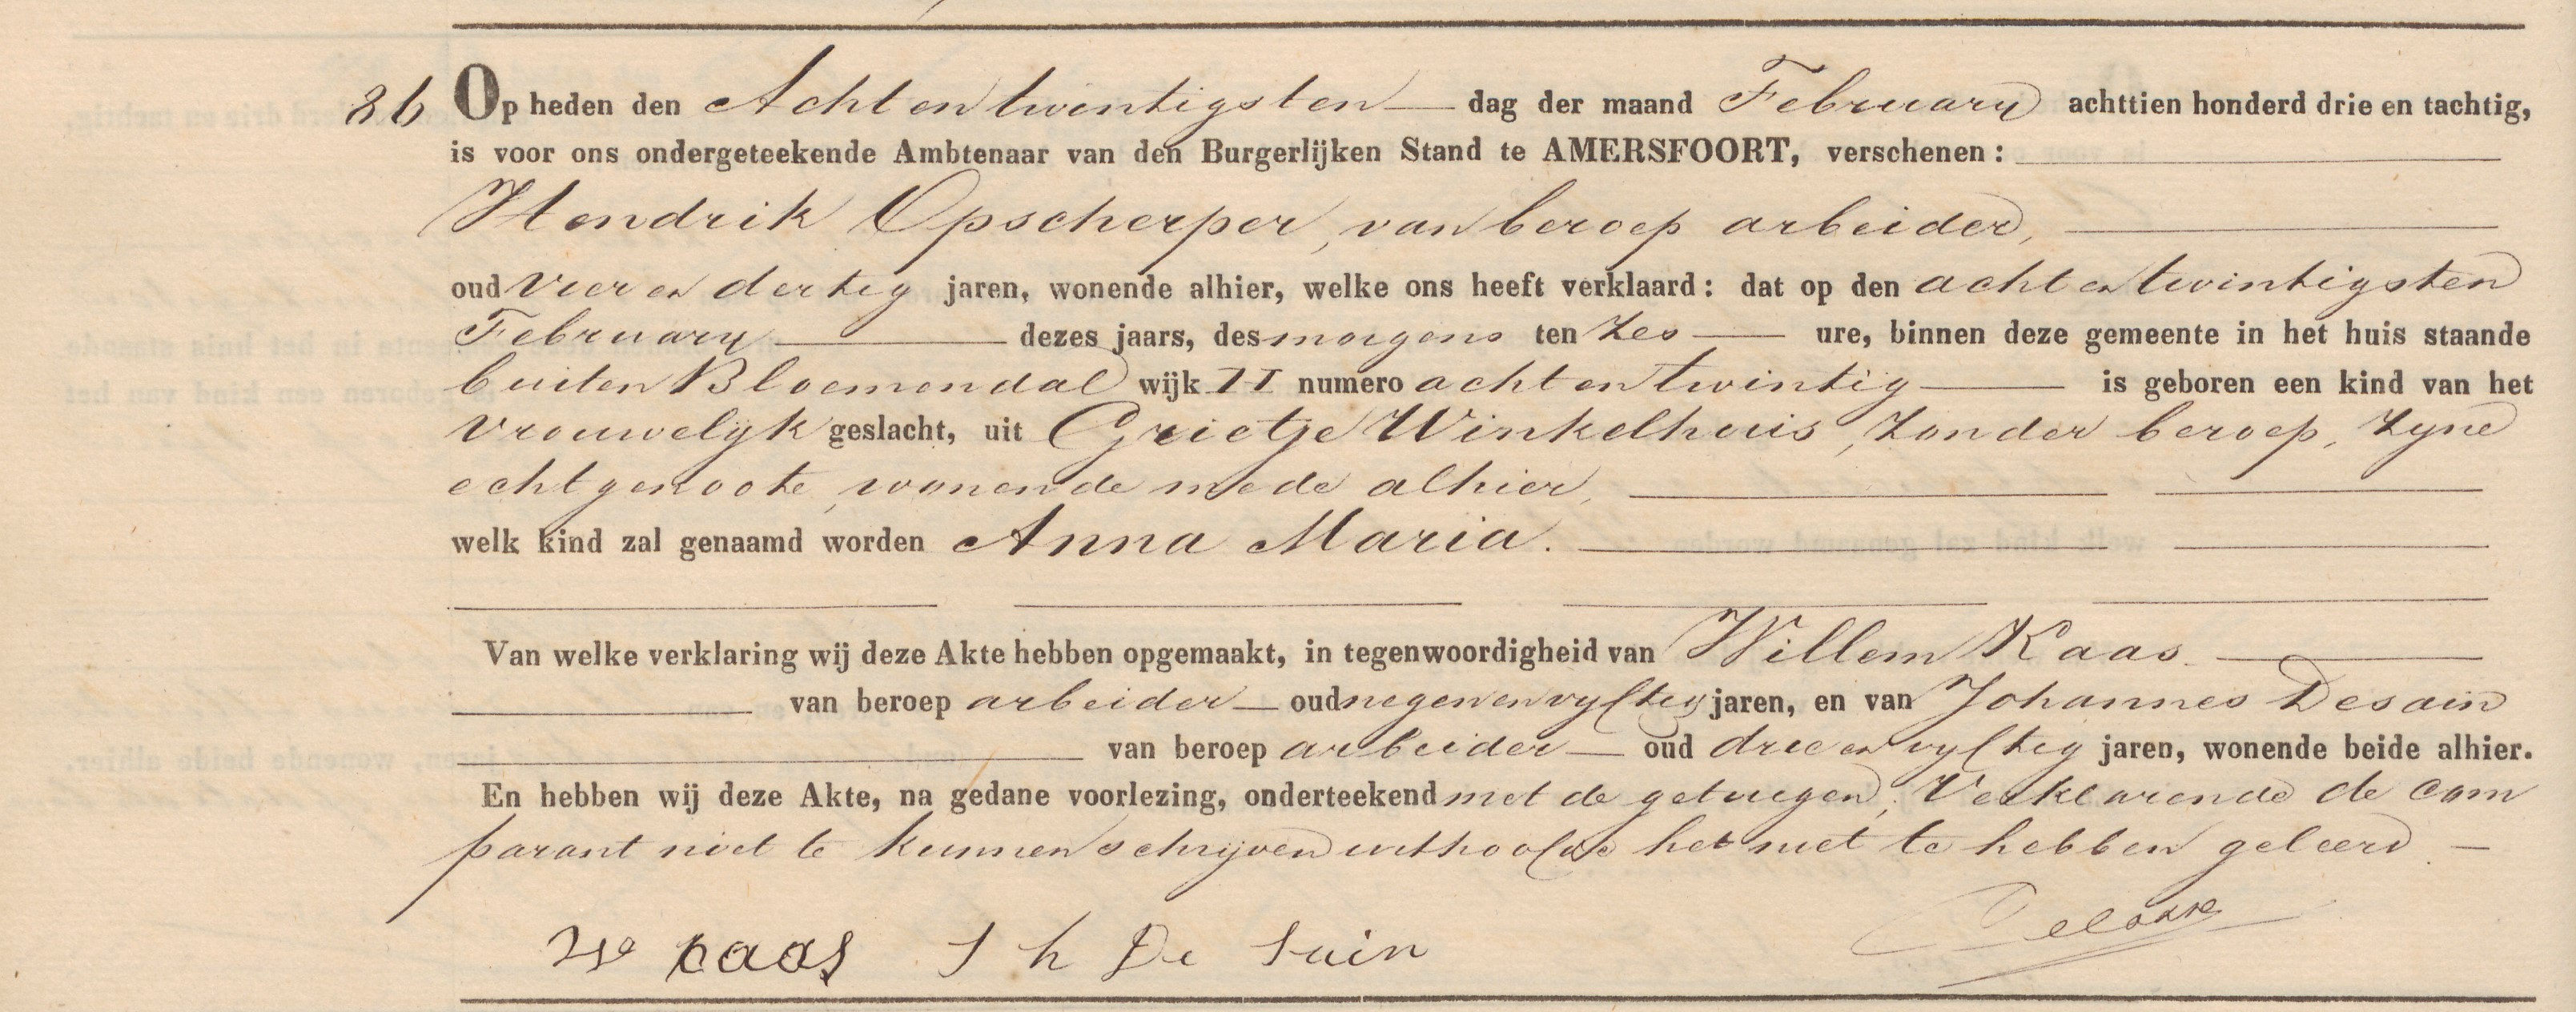 86 Op heden den Acht en twintigsten dag der maand February achttien honderd drie en tachtig,
is voor ons ondergeteekende Ambtenaar van den Burgerlijken Stand te AMERSFOORT, verschenen:
Hendrik Opscherper, van beroep arbeider,
oud vier en dertig jaren, wonende alhier, welke ons heeft verklaard: dat op den acht en twintigsten
February dezes jaars, des morgens ten zes ure, binnen deze gemeente in het huis staande
buiten Bloemendal wijk II numero acht en twintig is geboren een kind van het
vrouwelyk geslacht, uit Grietje Winkelhuis, zonder beroep, zyne
echtgenoote, wonende mede alhier,
welk kind zal genaamd worden Anna Maria.
Van welke verklaring wij deze Akte hebben opgemaakt, in tegenwoordigheid van Willem Kaas
van beroep arbeider oud negen en vyftig jaren, en van Johannes Desain
van beroep arbeider oud drie en vyftig jaren, wonende beide alhier.
En hebben wij deze Akte, na gedane voorlezing, onderteekend met de getuigen, Verklarende de com
parant niet te kunnen schryven uithoofde het niet te hebben geleerd.
W kaas J h De Suin